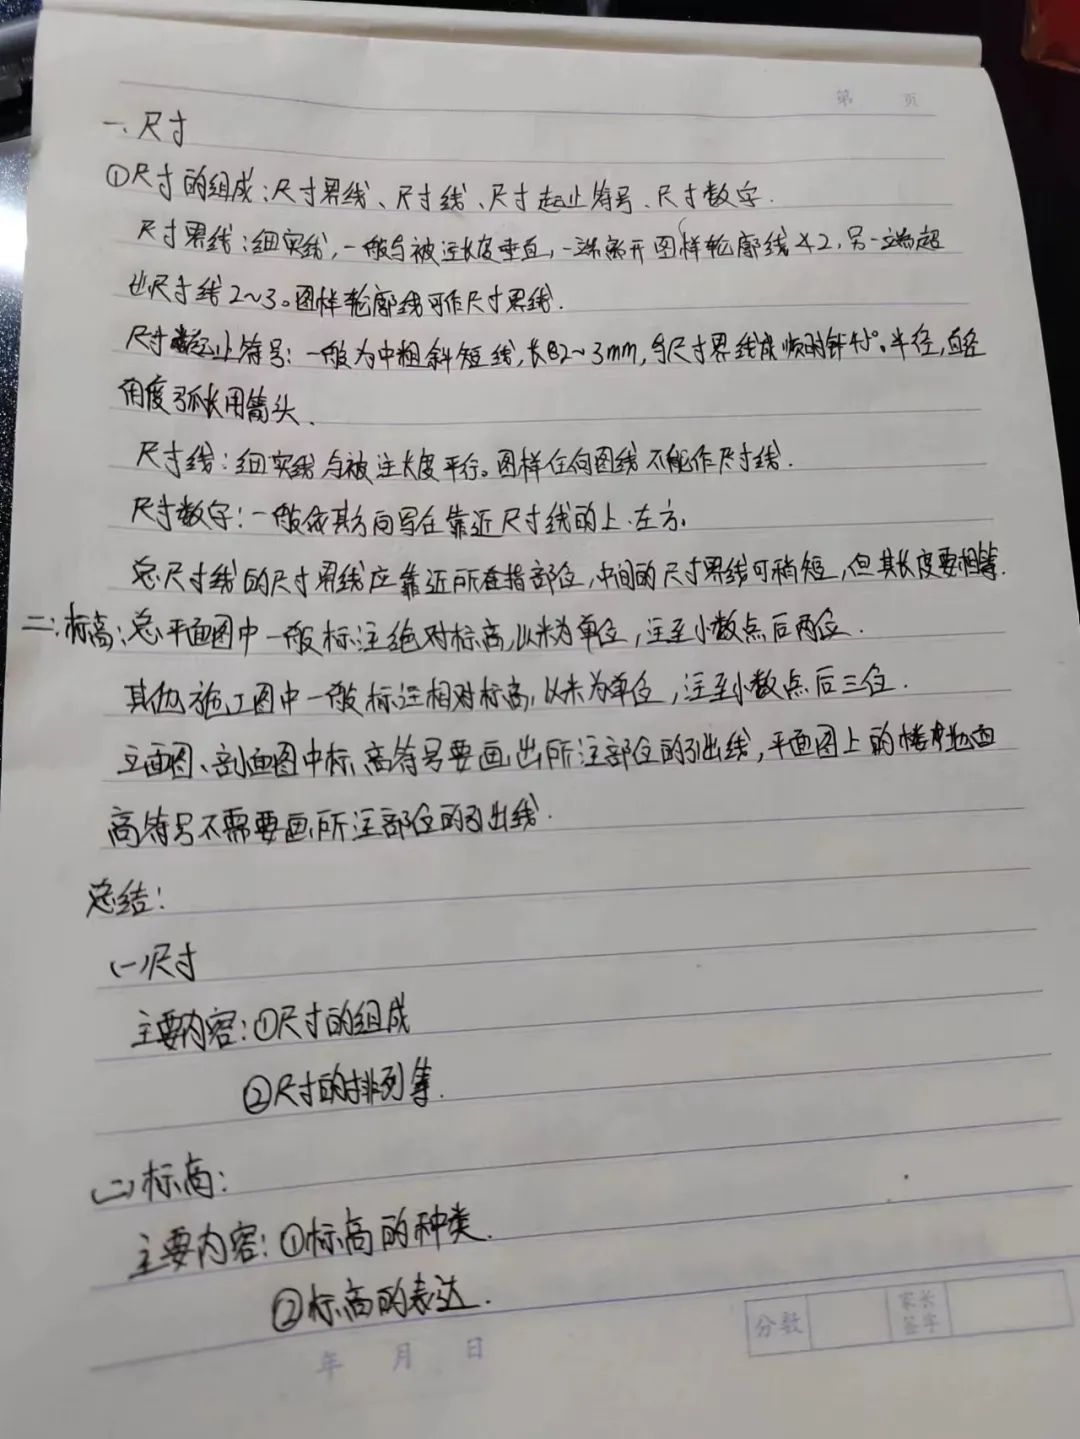 第 页
一、尺寸
①尺寸的组成：尺寸界线、尺寸线、尺寸起止符号、尺寸数字.
尺寸界线：细实线，一般与被注长度垂直，一端离开图样轮廓线≮2，另一端超
出尺寸线2~3。图样轮廓线可作尺寸界线.
尺寸起止符号：一般为中粗斜短线，长2~3mm，与尺寸界线成顺时针45°。半径，直径
角度弧长用箭头.
尺寸线：细实线与被注长度平行。图样任何图线不能作尺寸线.
尺寸数字：一般依其方向写在靠近尺寸线的上.左方.
总尺寸线的尺寸界线应靠近所指部位，中间的尺寸界线可稍短，但其长度要相等.
二：标高：总平面图中一般标注绝对标高，以米为单位，注至小数点后两位.
其他施工图中一般标注相对标高，以米为单位，注至小数点后三位.
立面图、剖面图中标高符号要画出所注部位的引出线，平面图上的楼地面
高符号不需要画所注部位的引出线.
总结：
(一)尺寸
主要内容：①尺寸的组成
②尺寸的排列等.
(二)标高：
主要内容：①标高的种类.
②标高的表达.
分数 家长签字
年 月 日